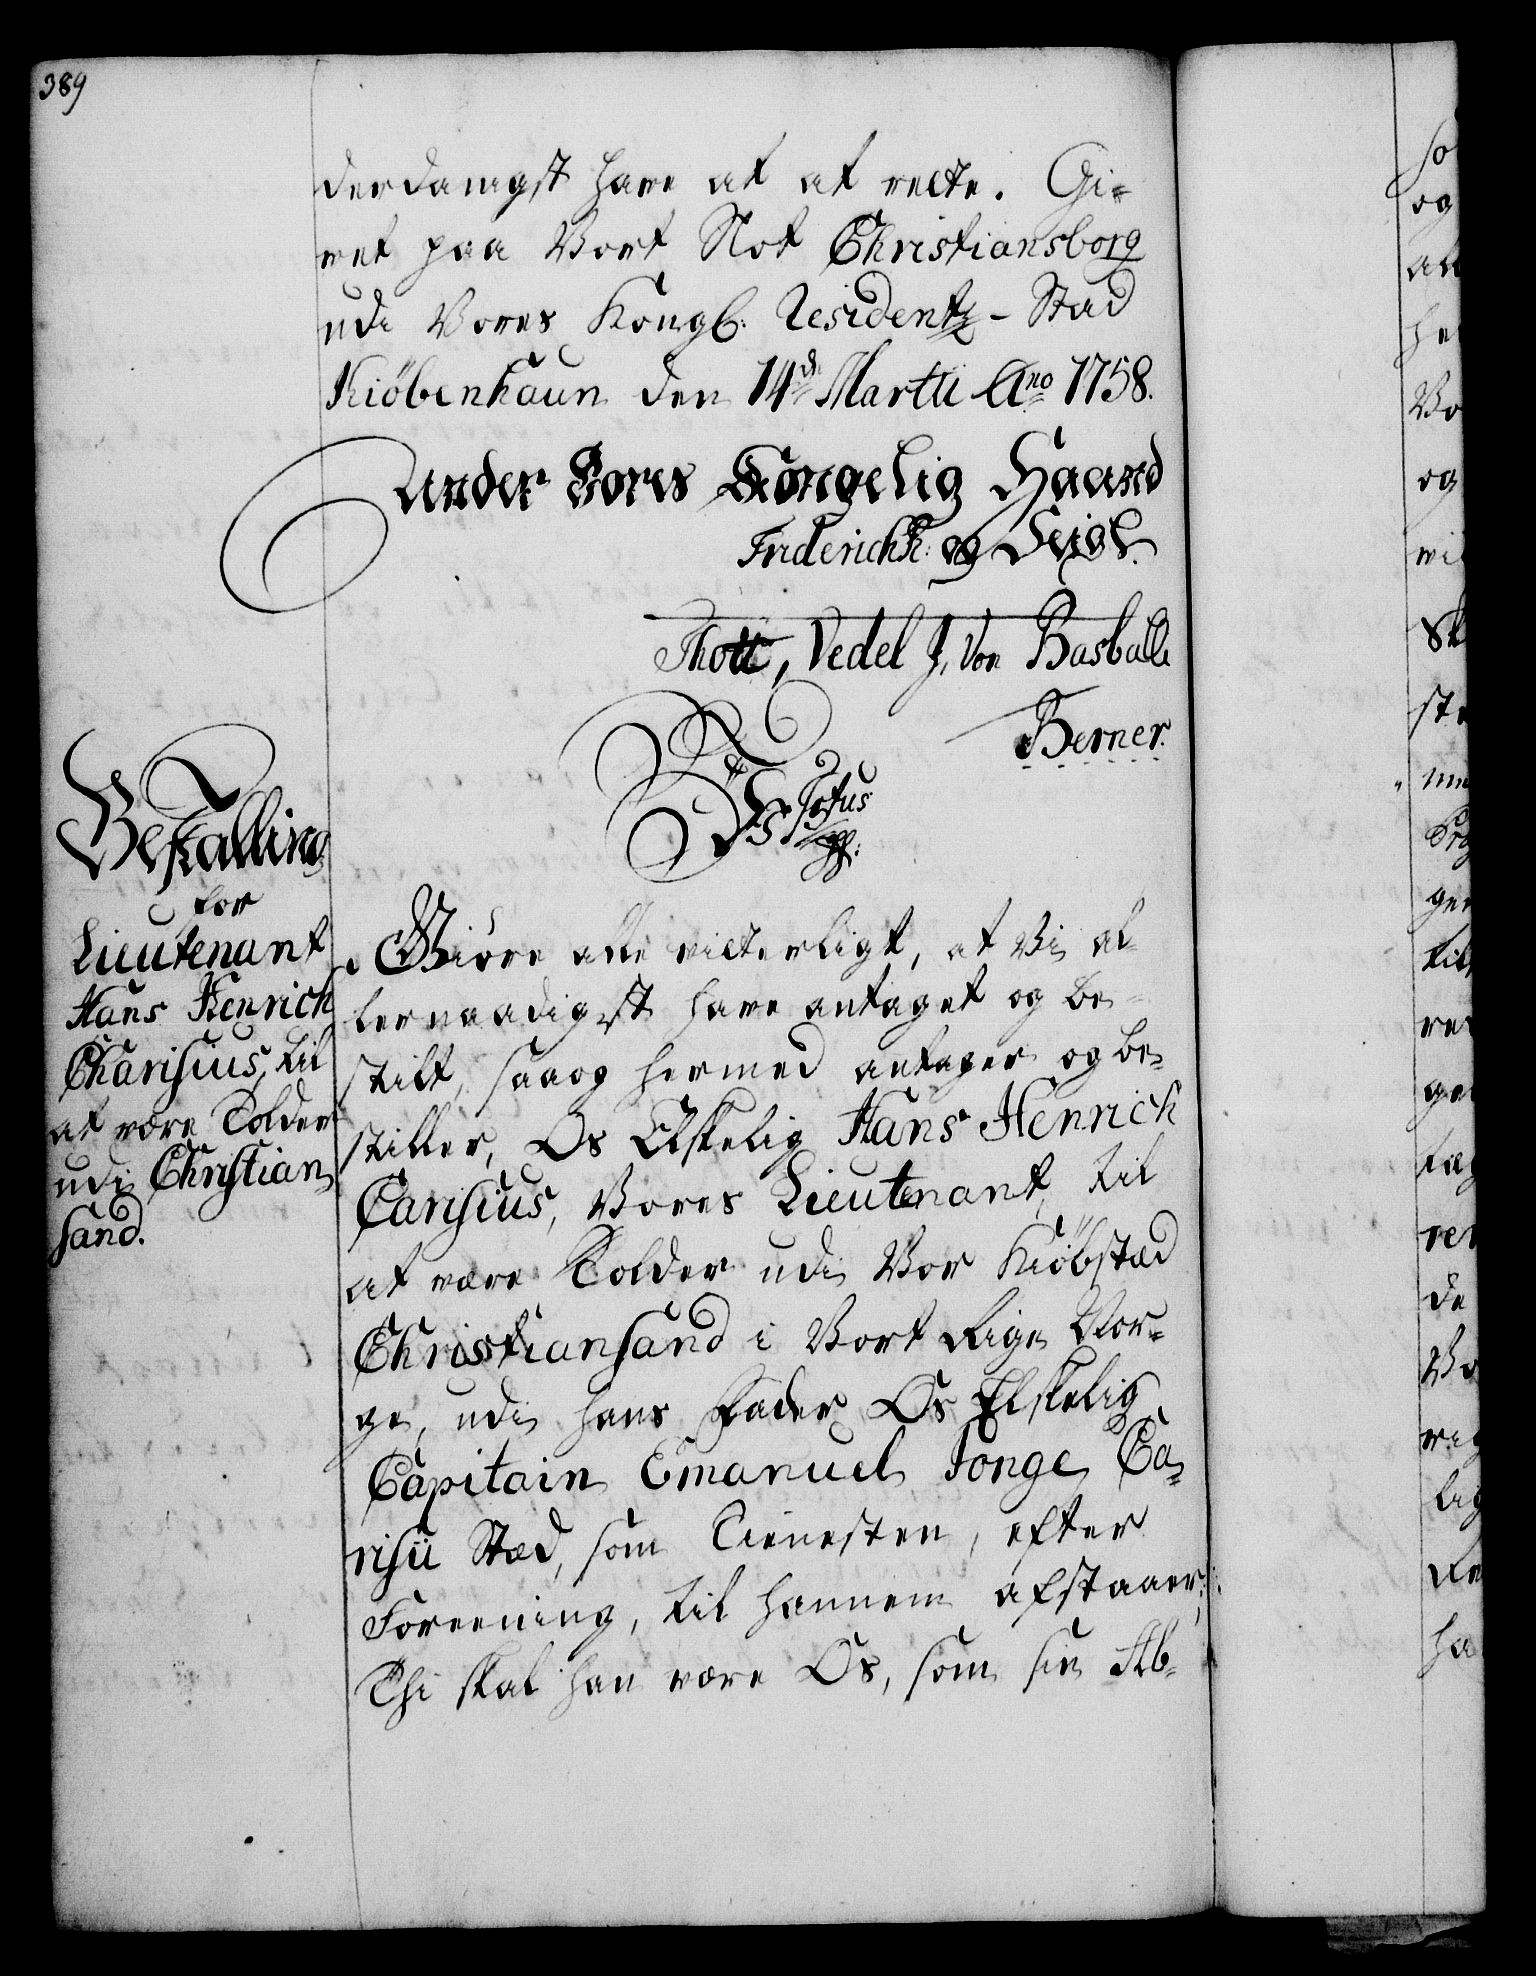 389
derdanigst have at at rette. Gi-
vet paa Vort Slot Christiansborg
udi Vores Kongl: Residentz-Stad
Kiöbenhaun den 14de Martii Ano 1758.
Under Vores Kongelig Haand
Friderich R: og Seigl.
Thott, Vedel J, Von Basballe
Berner.
Bestalling
for
Lieutenant
Hans Henrich
Charisius, til
at være Tolder
udi Christian-
sand.
F5 Totus
Giöre alle vitterligt, at Vi al-
lernaadigst have antaget og be-
stilt, saaog hermed antager og be-
stiller, Os Elskelig Hans Henrich
Carisius, Vores Lieutenant, til
at være Tolder udi Vor Kiöbstæd
Christiansand i Vort Rige Nor-
ge, udi hans Fader Os Elskelig
Capitain Emanuel Jonge Ca-
risii Stæd, som Tienesten, efter
Foreening, til hannem afstaaer;
Thi skal han være Os, som sin Ab-
so
og
all
he
Vo
og
vi
sk
ste
ger
til
re
ge
tag
rer
de
Vo
rig
lig
ha